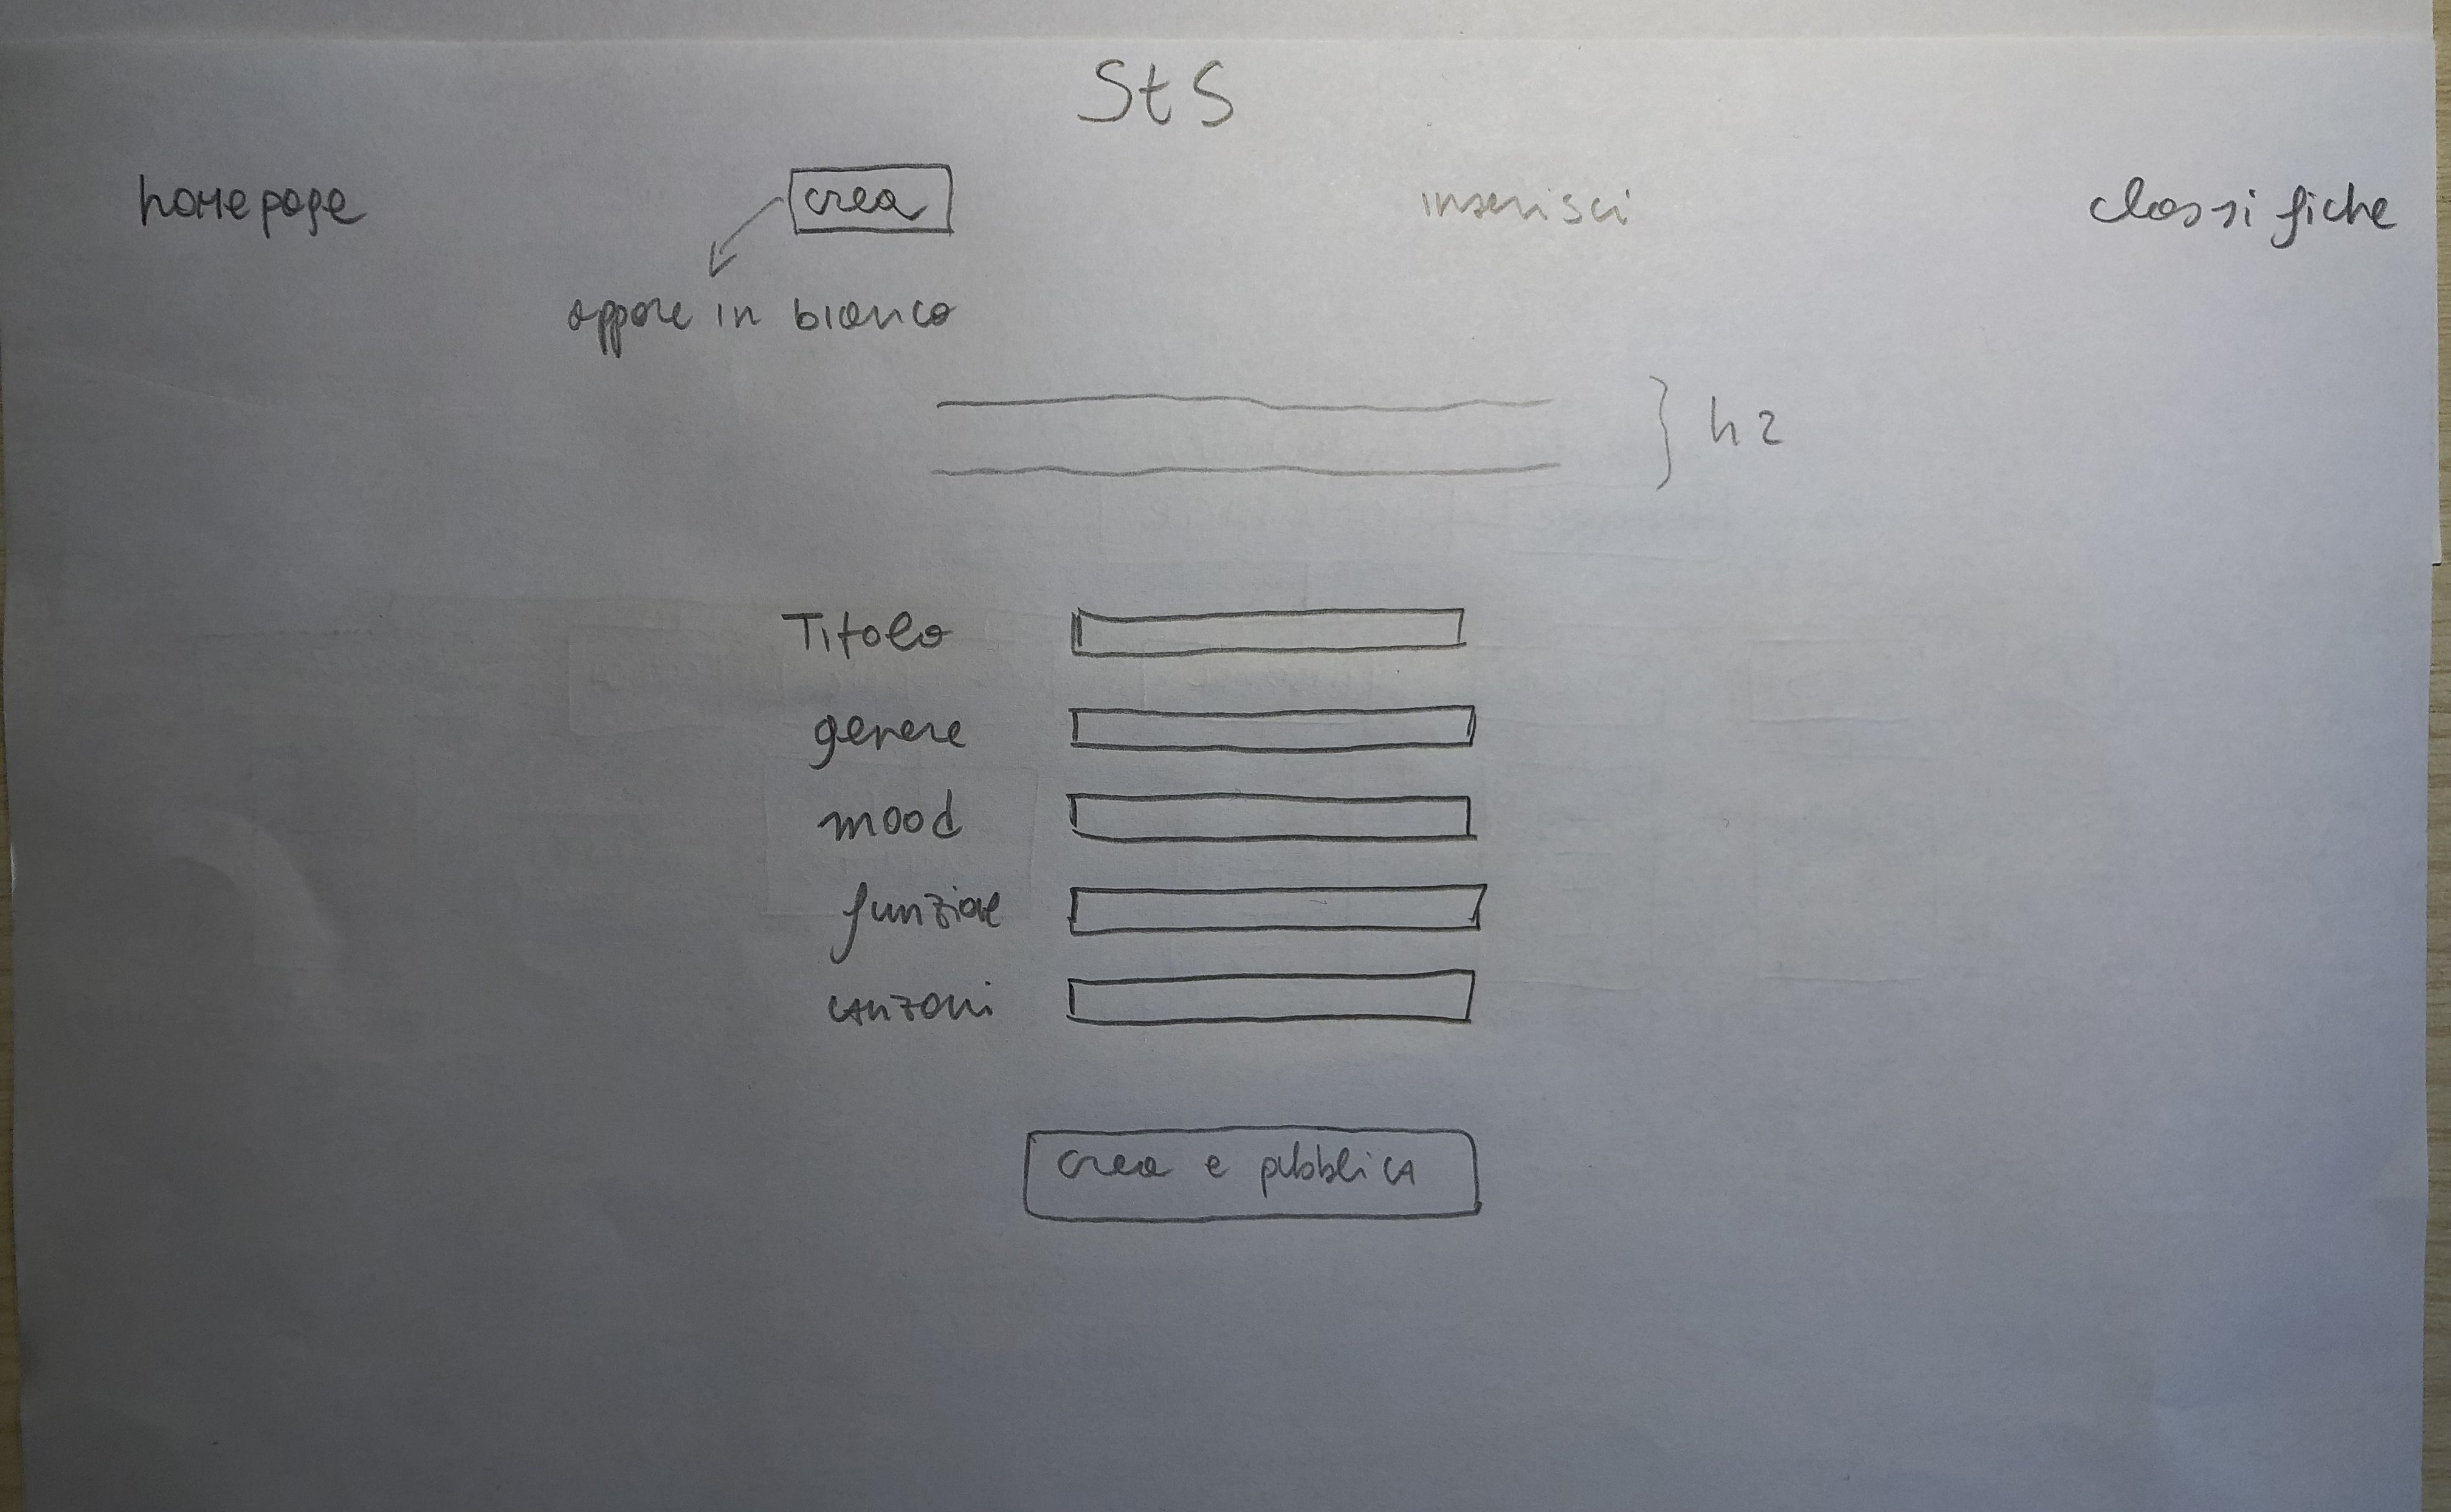 StS
homepage crea inserisci classifiche
appare in bianco
h2
Titolo
genere
mood
funzione
canzoni
crea e pubblica